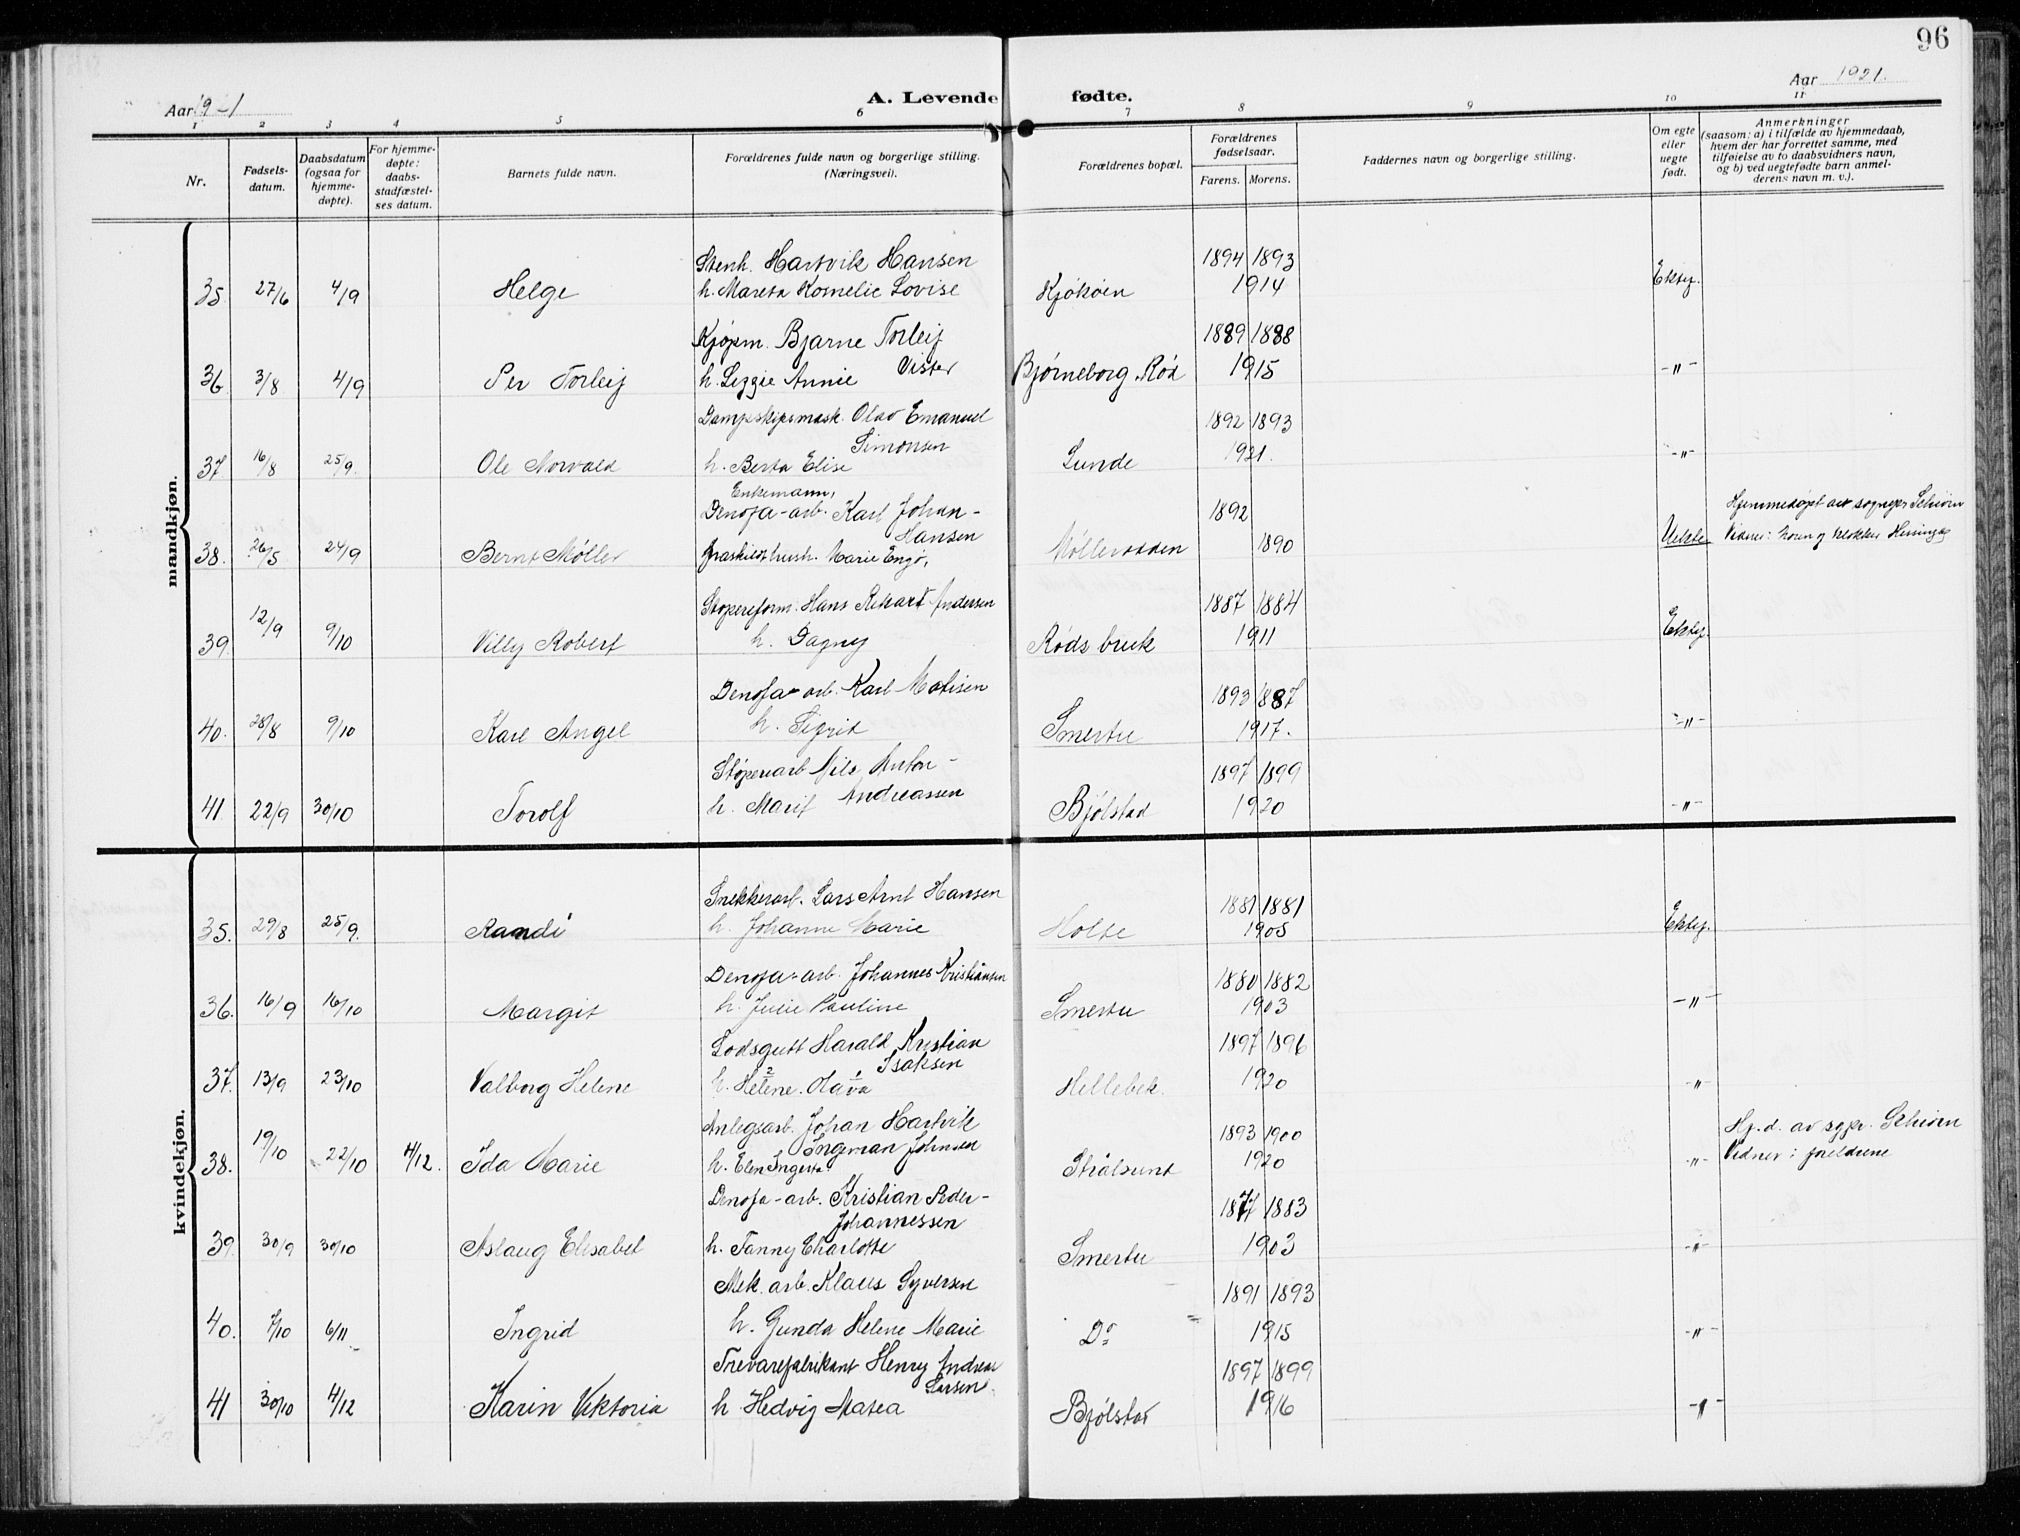 96
Aar 19-1
A. Levende fødte.
Aar 1921.
1 2 3 4 5 6 7 8 9 10 11
Nr.
Fødsels-
datum.
Daabsdatum
(ogsaa for
hjemme-
døpte).
For hjemme-
døpte:
daabs-
stadfæstel-
ses datum.
Barnets fulde navn.
Forældrenes fulde navn og borgerlige stilling.
(Næringsvei).
Forældrenes bopæl.
Forældrenes
fødselsaar.
Farens. Morens.
Faddernes navn og borgerlige stilling.
Om egte
eller
uegte
født.
Anmerkninger
(saasom: a) i tilfælde av hjemmedaab,
hvem der har forrettet samme, med
tilføielse av to daabsvidners navn,
og b) ved uegtefødte barn anmel-
derens navn m. v.).
mandkjøn.
Stenh. Hartvik Hansen 1894 1893
35 27/6 4/9 Helge h. Mareta Kornelie Lovise Kjøkøen 1914 Ektef.
Kjøpm. Bjarne Torleif 1889 1888
Vister
36 3/8 4/9 Per Torleif h. Lizzie Annie Bjørneborg. Rød 1915 -"-
Dampskipsmask. Olav Emanuel 1892 1893
Simonsen
37 16/8 25/9. Ole Norvald h. Berta Elise Lunde 1921. -"-
Enkemann,
Denofa-arb. Karl Johan- 1892 Hjemmedøpt av sognepr Schiøen
Hansen
38. 26/5 24/9 Bernt Møller fraskildt hush. Marie Engø, Møllerodden 1890 Uekte
Støpereform. Hans Rikart Andersen 1887 1884
39. 12/9 9/10 Villy Robert h. Dagny Røds bruk 1911 Ektef.
Denofa-arb. Karl Matisen 1893 1887
40. 28/8 9/10 Karl Angel h. Sigrid Smertu 1917. -"-
Støperiarb Nils Anton- 1897 1899
Andreassen
41 22/9 30/10 Torolf h. Marit Bjølstad 1920 -"-
kvindekjøn.
Snekkerarb. Lars Arnt Hansen 1881 1881
35. 29/8 25/9. Randi h. Johanne Marie Holte 1905 Ektef.
Denofa-arb. Johannes Kristiansen 1880 1882
36. 16/9 16/10 Margit h. Julie Pauline Smertu 1903 -"-
Lodsgutt Harald Kristian 1897 1896
Isaksen
2 1
37. 13/9 23/10 Valborg Helene h. Helene. Olava Hellebek. 1920 -"-
Anlegsarb. Johan Hartvik 1893 1900 Hj.d. av sgpr. Schiøen
Ingeman Johnsen
38. 19/10 22/10 4/12. Ida Marie h. Elen Ingerta Strålsund 1920 -"- Vidner: foreldrene
Denofa-arb. Kristian Peder- 1877 1883
Johannessen
39. 30/9 30/10 Aslaug Elisabet h. Fanny Charlotte Smertu 1903 -"-
Mek. arb. Klaus Syversen 1891 1893
40. 7/10 6/11 Ingrid h. Gunda Helene Marie Do 1915 -"-
Trevarefabrikant Henry Andreas 1897 1899
Larsen
41 30/10 4/12 Karin Viktoria h. Hedvig Matea Bjølstad 1916 -"-